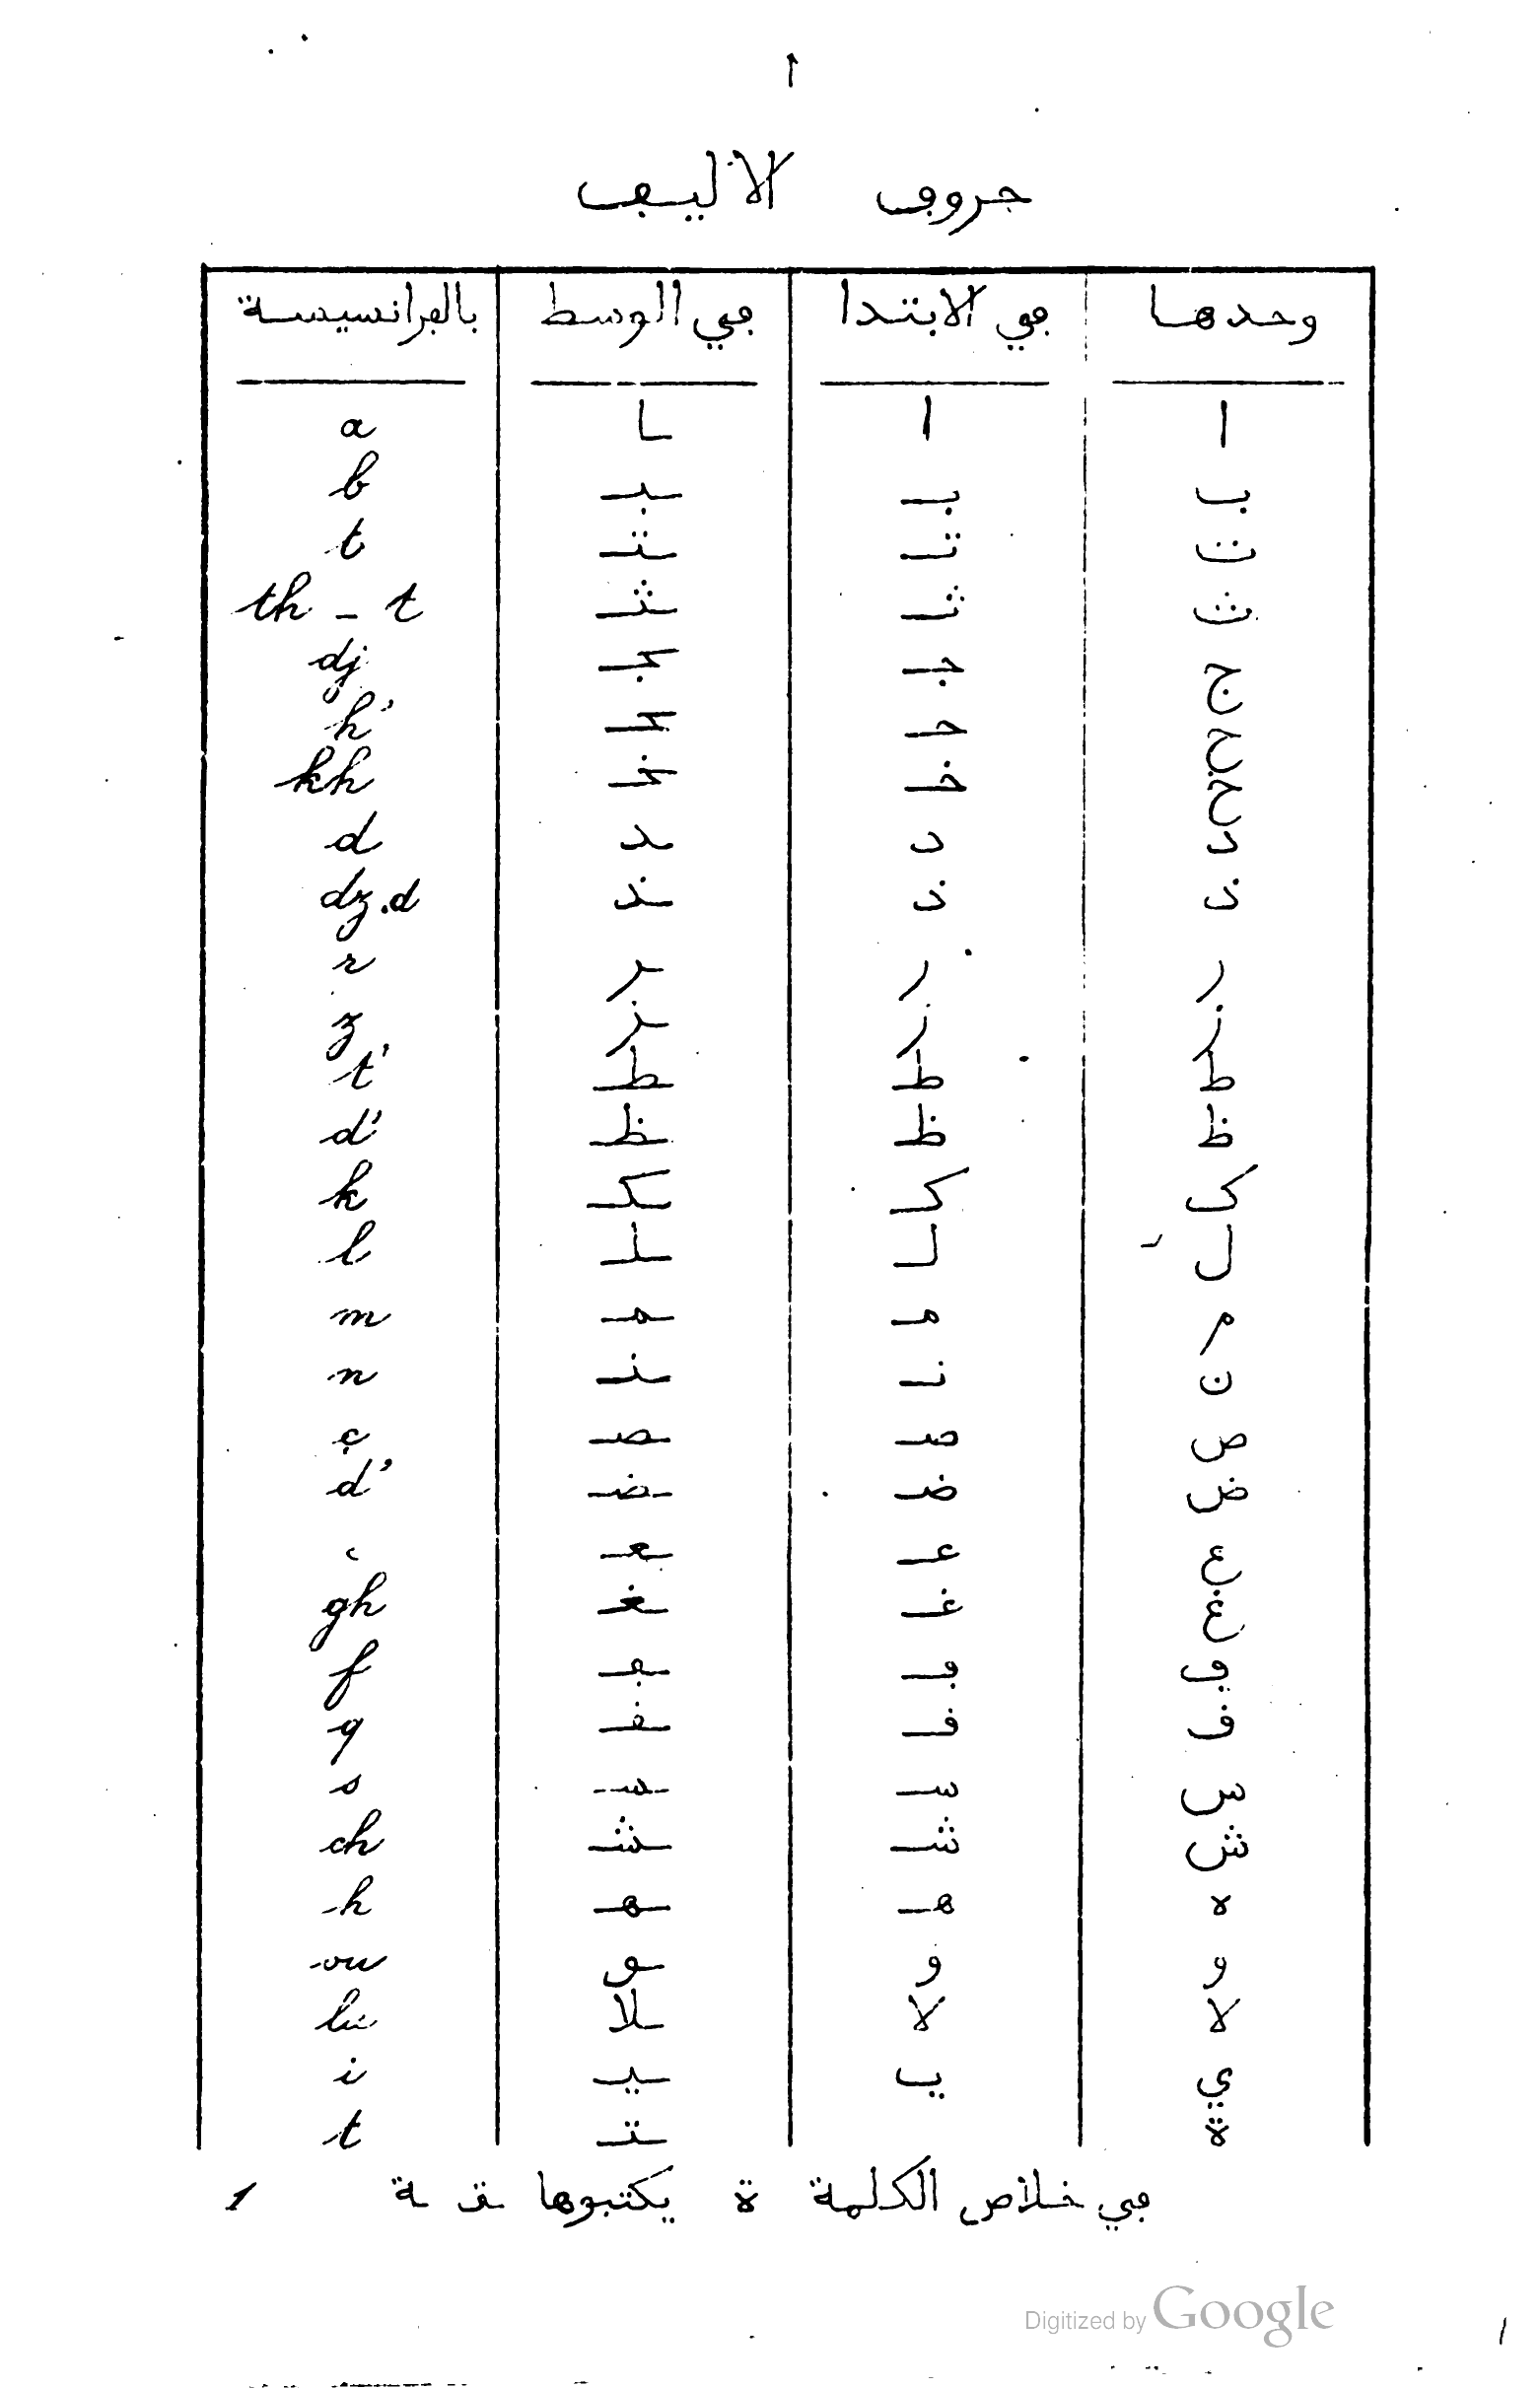 ١
حروڢ الاليڢ
وحدها ڢي الابتدا ڢي الوسط بالڢرانسيسة
ا ا ـا a
ب بـ ـبـ b
ت تـ ـتـ t
ث ثـ ـثـ th - t
ج جـ ـجـ dj
ح حـ ـحـ h'
خ خـ ـخـ kh
د د ـد d
ذ ذ ـذ dz.d
ر ر ـر r
ز ز ـز z
ط طـ ـطـ t'
ظ ظـ ـظـ d'
ک کـ ـکـ k
ل لـ ـلـ l
م مـ ـمـ m
ن نـ ـنـ n
ص صـ ـصـ ç
ض ضـ ـضـ d'
ع عـ ـعـ ʿ
غ غـ ـغـ gh
ڢ ڢـ ـڢـ f
ڧ ڧـ ـڧـ q
س سـ ـسـ s
ش شـ ـشـ ch
ه هـ ـهـ h
و و ـو ou
لا لا ـلا la
ي يـ ـيـ i
ة ـتـ t
ڢي خلاص الكلمة ة يكتبوها ـة 1
Digitized by Google